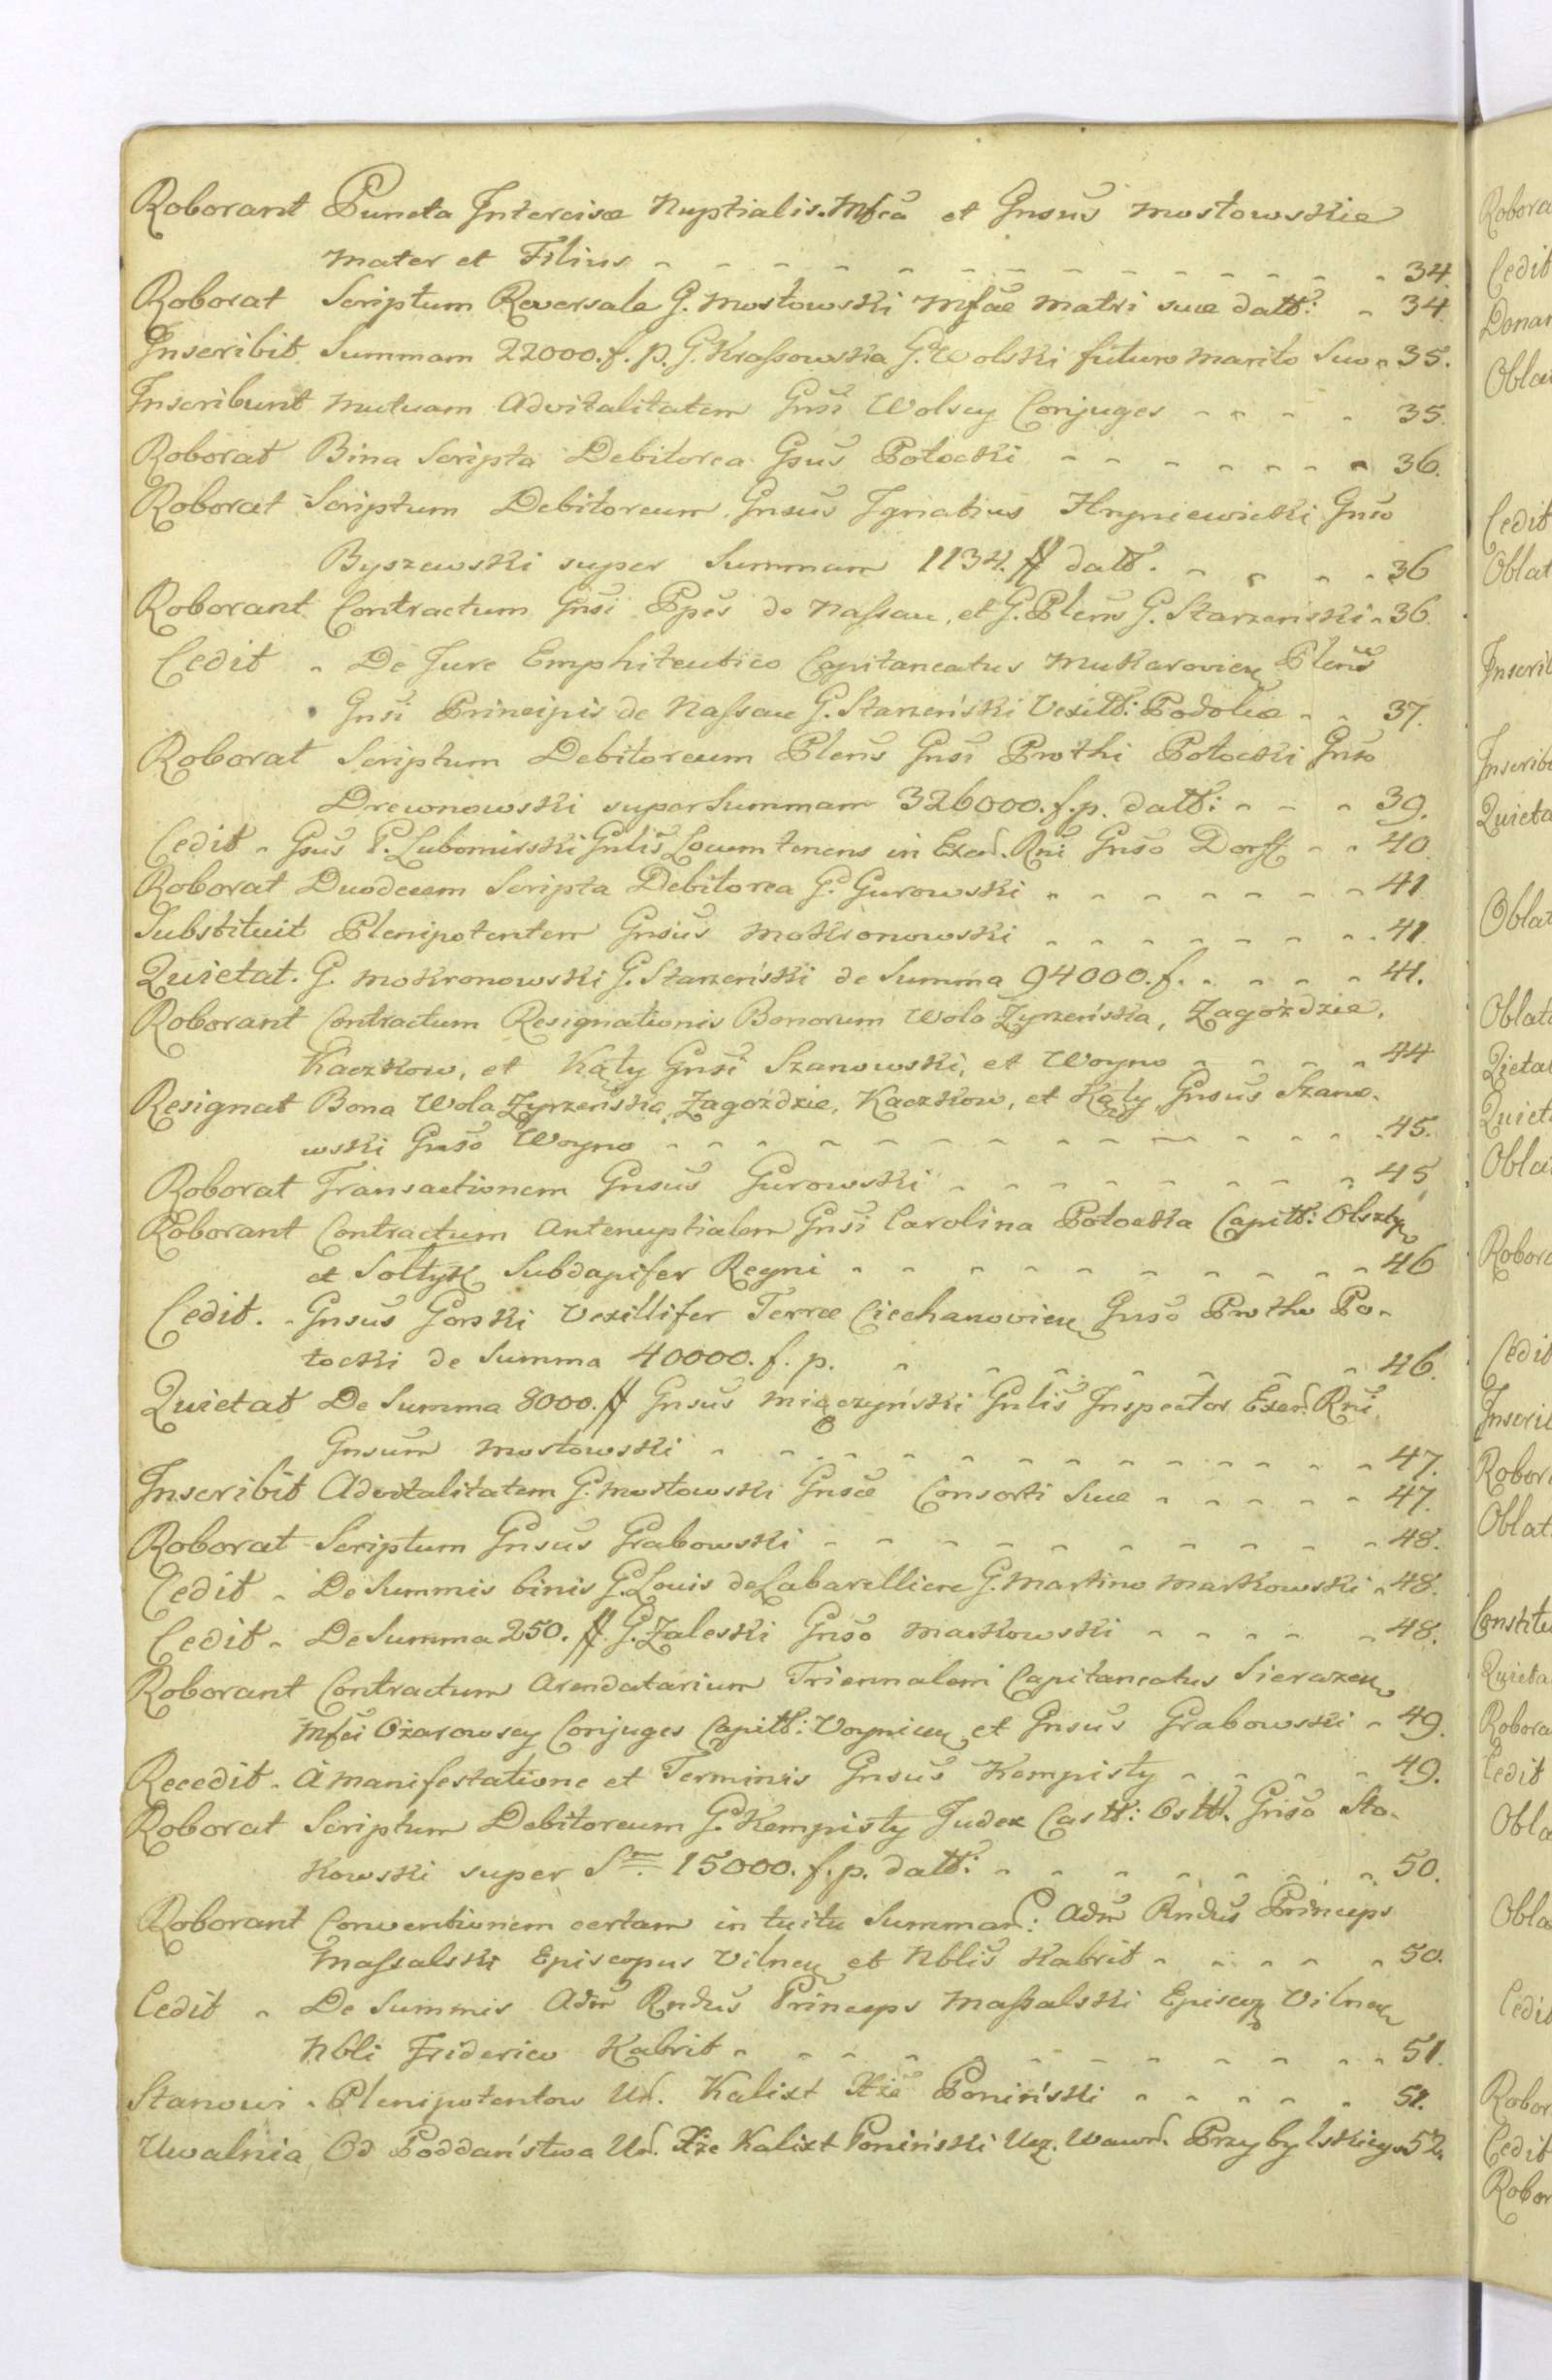 Roborant Puncta Intercisæ Nuptialis. Mfca et Gnsus Mostowskie
Mater et Filius - - - - - - - - - - - - 34.
Roborat Scriptum Reversale G. Mostowski Mfcæ Matri suæ datt: - 34.
Inscribit Summam 22000. f. p. G. Krassowska G. Wolski futuro Marito Suo - 35.
Inscribunt mutuam Advitalitatem Gnsi Wolscy Conjuges - - - - 35.
Roborat Bina Scripta Debitorea Gsus Potocki - - - - - - - 36.
Roborat Scriptum Debitoreum Gnsus Ignatius Hryniewiecki Gnso
Byszewski super Summam 1134. # datt. - - - - 36
Roborant Contractum Gnsi Ppes de Nassau, et G. Plens G. Starzenski - 36.
Cedit - De Jure Emphiteutico Capitaneatus Mukarovien Plens
Gnsi Principis de Nassau G. Starzeński Vexill: Podoliæ - - 37.
Roborat Scriptum Debitoreum Plens Gnsi Prothi Potocki Gnso
Drewnowski super Summam 326000. f. p. datt: - - - 39.
Cedit - Gsus P. Lubomirski Gnlis Locumtenens in Exerc. Rni Gnso Dorff - - 40
Roborat Duodecem Scripta Debitorea G. Gurowski - - - - - - - 41
Substituit Plenipotentem Gnsus Mokronowski - - - - - - - 41.
Quietat. G. Mokronowski G. Starzeński de Summa 94000. f. - - - - 41.
Roborant Contractum Resignationis Bonorum Wola Zyrzeńska, Zagoździe,
Kaczkow, et Kąty Gnsi Szanowski, et Woyno - - - - 44
Resignat Bona Wola Zyrzeńska, Zagoździe, Kaczkow, et Kąty Gnsus Szano-
wski Gnso Woyno - - - - - - - - - - - - 45.
Roborat Transactionem Gnsus Gurowski - - - - - - - 45
Roborant Contractum Antenuptialem Gnsi Carolina Potocka Capitt: Olsztyn
et Sołtyk Subdapifer Regni - - - - - - - - - 46
Cedit. - Gnsus Gorski Vexillifer Terræ Ciechanovien Gnso Protho Po-
tocki de Summa 40000. f. p. - - - - - - - 46.
Quietat De Summa 8000. # Gnsus Miączyński Gnlis Inspector Exer. Rni
Gnsum Mostowski - - - - - - - - - - - - 47.
Inscribit Advitalitatem G. Mostowski Gnsæ Consorti Suæ - - - - - 47.
Roborat Scriptum Gnsus Grabowski - - - - - - - - - - 48.
Cedit - De Summis binis G. Louis de Labarelliere G. Martino Markowski - 48.
Cedit - De Summa 250. # G. Zaleski Gnso Markowski - - - - - 48.
Roborant Contractum Arendatarium Triennalem Capitaneatus Sierazen
Mfci Ożarowscy Conjuges Capitt: Voynicen et Gnsus Grabowski - 49.
Recedit - À Manifestatione et Terminis Gnsus Kempisty - - - - 49.
Roborat Scriptum Debitoreum G. Kempisty Judex Castt: Ostt. Gnso Sto-
kowski super Sm. 15000. f. p. datt: - - - - - - - 50.
Roborant Conventionem certam intuitu Summar: Adm Rndus Princeps
Massalski Episcopus Vilnen et Nblis Kabrit - - - - - 50.
Cedit - De Summis Adm Rndus Princeps Massalski Episcop Vilnen
Nbli Friderico Kabrit - - - - - - - - - - - 51.
Stanowi - Plenipotentow Ur. Kalixt Xże Poniński - - - - - 51.
Uwalnia Od Poddaństwa Ur. Xże Kalixt Poniński Ucz. Wawrz. Przybylskiego 52.
Robora
Cedit
Donar
Oblat
Cedit
Oblat
Inscrib
Inscribi
Quieta
Oblat
Oblata
Qietat
Quiet
Oblat
Robora
Cedit
Inscrib
Robor
Oblat
Constitu
Quieta
Robora
Cedit
Obla
Obla
Cedit
Robor
Cedit
Robor